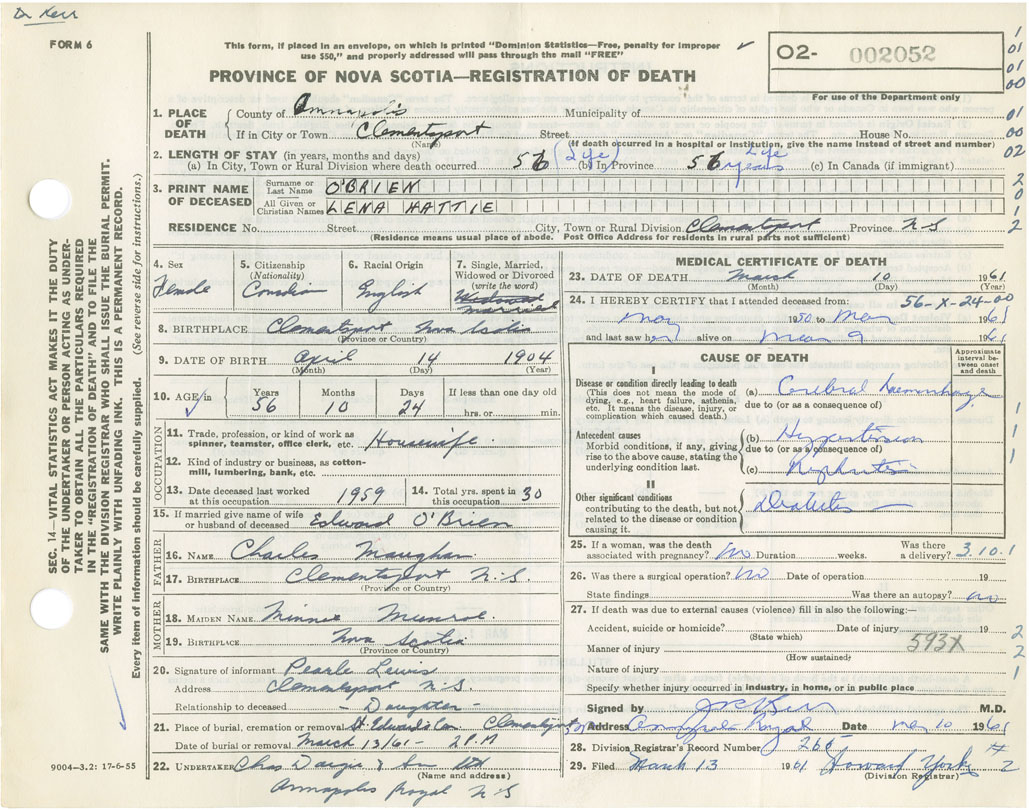 Dr Kerr
FORM 6
This form, if placed in an envelope, on which is printed "Dominion Statistics—Free, penalty for improper
use $50," and properly addressed will pass through the mail "FREE"
✓
O2- 002052
For use of the Department only
PROVINCE OF NOVA SCOTIA—REGISTRATION OF DEATH
1. PLACE OF DEATH
County of Annapolis Municipality of
If in City or Town Clementsport Street House No.
(Name) (If death occurred in a hospital or institution, give name instead of street and number)
2. LENGTH OF STAY (in years, months and days)
(a) In City, Town or Rural Division where death occurred 56 (b) In Province 56 years (c) In Canada (if immigrant)
3. PRINT NAME OF DECEASED
Surname or Last Name O'BRIEN
All Given or Christian Names LENA HATTIE
RESIDENCE No. Street City, Town or Rural Division Clementsport Province N S
(Residence means usual place of abode. Post Office Address for residents in rural parts not sufficient)
4. Sex Female
5. Citizenship (Nationality) Canadian
6. Racial Origin English
7. Single, Married, Widowed or Divorced (write the word) Widowed married
8. BIRTHPLACE Clementsport Nova Scotia
(Province or Country)
9. DATE OF BIRTH April 14 1904
(Month) (Day) (Year)
10. AGE in Years Months Days If less than one day old
56 10 24 hrs. or min.
OCCUPATION
11. Trade, profession, or kind of work as spinner, teamster, office clerk, etc. Housewife.
12. Kind of industry or business, as cotton-mill, lumbering, bank, etc.
13. Date deceased last worked at this occupation 1959
14. Total yrs. spent in this occupation 30
15. If married give name of wife or husband of deceased Edward O'Brien
FATHER
16. NAME Charles Maughan
17. BIRTHPLACE Clementsport N.S.
(Province or Country)
MOTHER
18. MAIDEN NAME Minnie Munroe
19. BIRTHPLACE Nova Scotia
(Province or Country)
20. Signature of informant Pearle Lewis
Address Clementsport N.S.
Relationship to deceased - Daughter -
21. Place of burial, cremation or removal St. Edwards Cem Clementsport
Date of burial or removal March 13/61 - 2 P.M
22. UNDERTAKER Chas Dargie & Son Ltd
(Name and address)
Annapolis Royal N S
9004—3.2: 17-6-55
MEDICAL CERTIFICATE OF DEATH
23. DATE OF DEATH March 10 1961
(Month) (Day) (Year)
24. I HEREBY CERTIFY that I attended deceased from: 56-X-24-00
May 1950 to Mar 1961
and last saw her alive on Mar 9 1961
CAUSE OF DEATH
Approximate interval between onset and death
I
Disease or condition directly leading to death
(This does not mean the mode of dying, e.g., heart failure, asthenia, etc. It means the disease, injury, or complication which caused death.)
(a) Cerebral haemorrhage
due to (or as a consequence of)
Antecedent causes
Morbid conditions, if any, giving rise to the above cause, stating the underlying condition last.
(b) Hypertension
due to (or as a consequence of)
(c) Nephritis
II
Other significant conditions
contributing to the death, but not related to the disease or condition causing it.
Diabetes
25. If a woman, was the death associated with pregnancy? No Duration weeks. Was there a delivery? 3.10.1
26. Was there a surgical operation? No Date of operation 19
State findings Was there an autopsy? no
27. If death was due to external causes (violence) fill in also the following:—
Accident, suicide or homicide? Date of injury 19
(State which)
593X
Manner of injury
(How sustained)
Nature of injury
Specify whether injury occurred in industry, in home, or in public place
Signed by M.D.
Address Annapolis Royal Date Mar 10 1961
28. Division Registrar's Record Number 265
29. Filed March 13 1961 Howard York
(Division Registrar)
SEC. 14—VITAL STATISTICS ACT MAKES IT THE DUTY
OF THE UNDERTAKER OR PERSON ACTING AS UNDER-
TAKER TO OBTAIN ALL THE PARTICULARS REQUIRED
IN THE "REGISTRATION OF DEATH" AND TO FILE THE
SAME WITH THE DIVISION REGISTRAR WHO SHALL ISSUE THE BURIAL PERMIT.
WRITE PLAINLY WITH UNFADING INK. THIS IS A PERMANENT RECORD.
Every item of information should be carefully supplied. (See reverse side for instructions.)
1
01
01
00
01
00
02
2
0
1
2
1
1
1
1
2
2
1
2